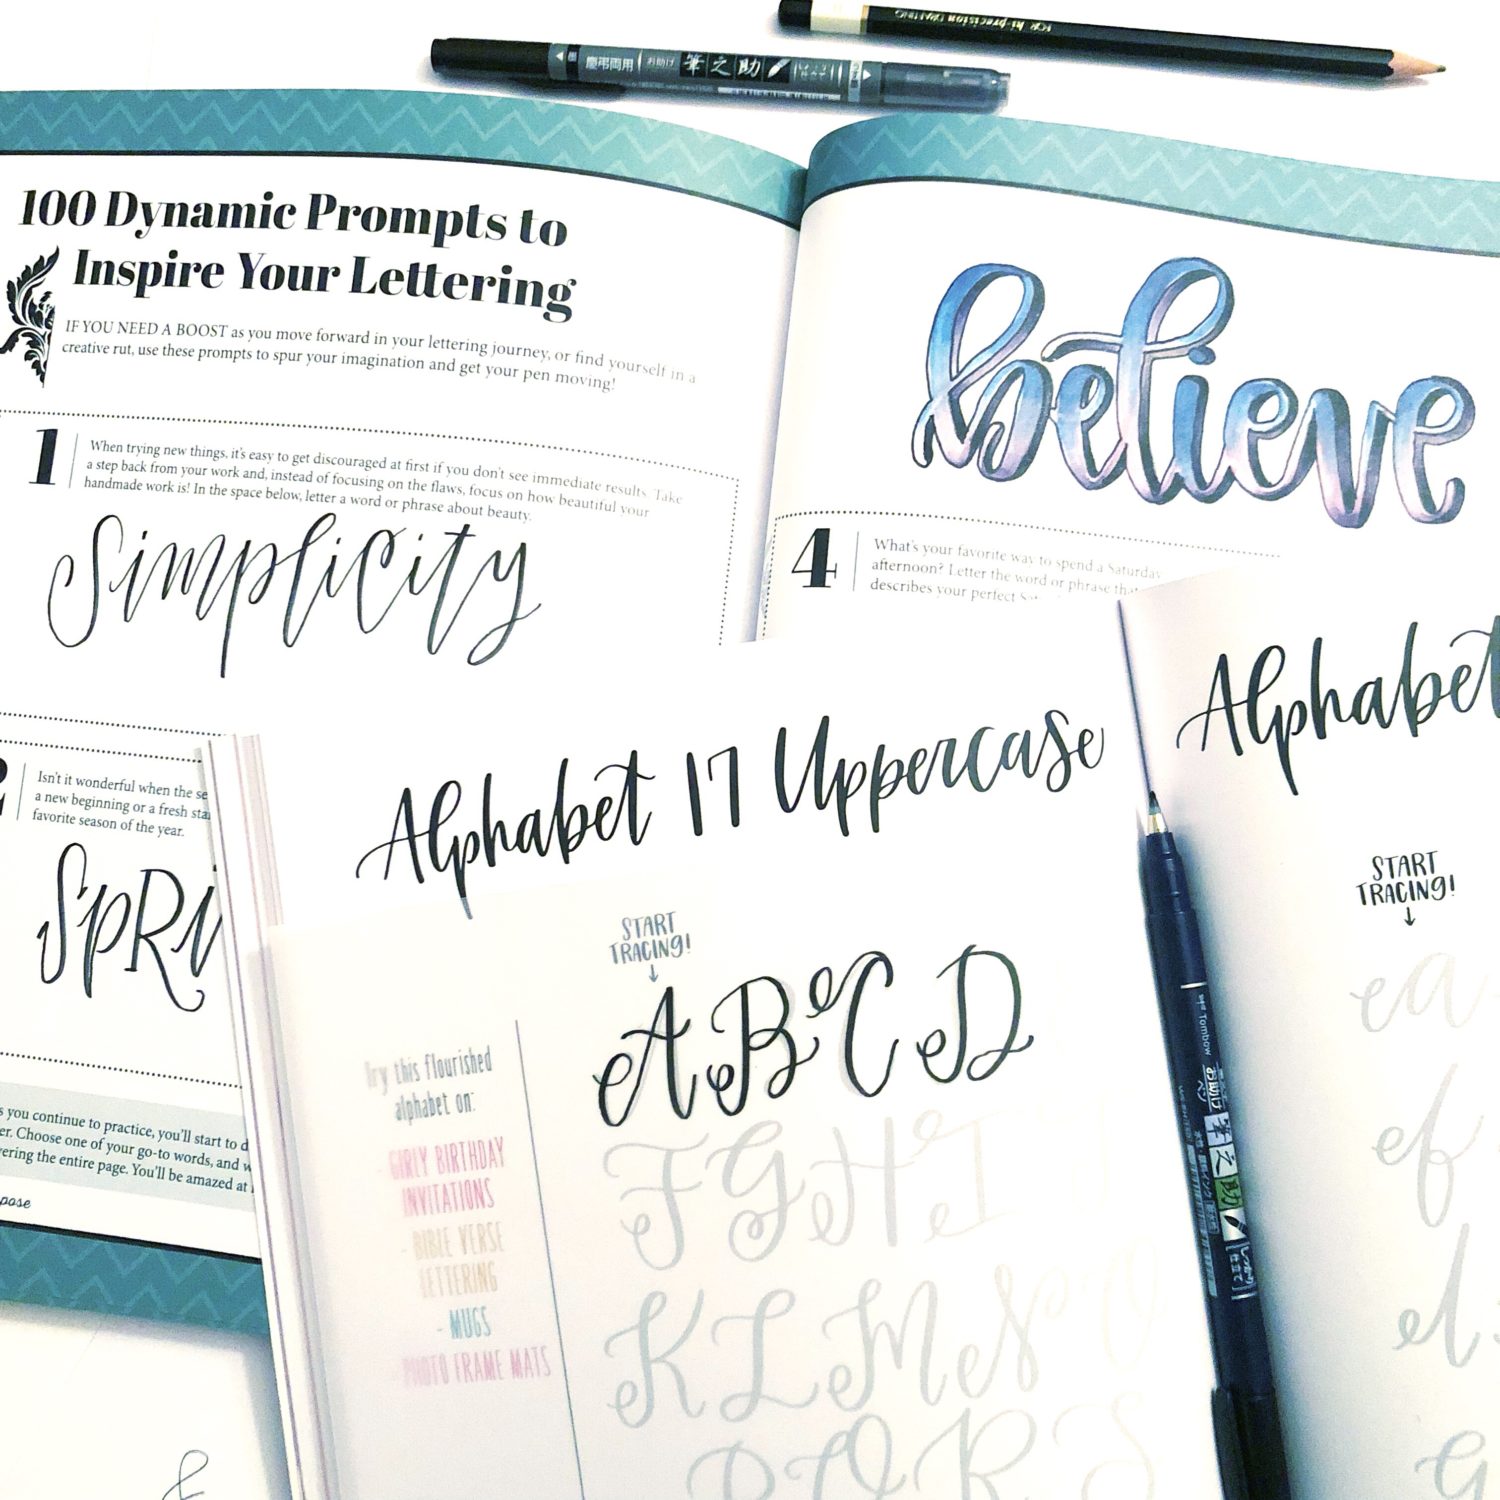 FOR hi-precision DRAFTING
慶弔両用 お助け 筆之助
100 Dynamic Prompts to
Inspire Your Lettering
IF YOU NEED A BOOST as you move forward in your lettering journey, or find yourself in a
creative rut, use these prompts to spur your imagination and get your pen moving!
1
When trying new things, it's easy to get discouraged at first if you don't see immediate results. Take
a step back from your work and, instead of focusing on the flaws, focus on how beautiful your
handmade work is! In the space below, letter a word or phrase about beauty.
Simplicity
Isn't it wonderful when the se
a new beginning or a fresh sta
favorite season of the year.
SpRi
s you continue to practice, you'll start to d
er. Choose one of your go-to words, and w
vering the entire page. You'll be amazed at
pose
believe
4
What's your favorite way to spend a Saturday
afternoon? Letter the word or phrase that
describes your perfect
Alphabet 17 Uppercase
START
TRACING!
Try this flourished
alphabet on:
- GIRLY BIRTHDAY
INVITATIONS
- BIBLE VERSE
LETTERING
- MUGS
- PHOTO FRAME MATS
A B C D
F G H I
K L M N O
P Q R S
Tombow
Alphabet
START
TRACING!
ea
ef
el
&